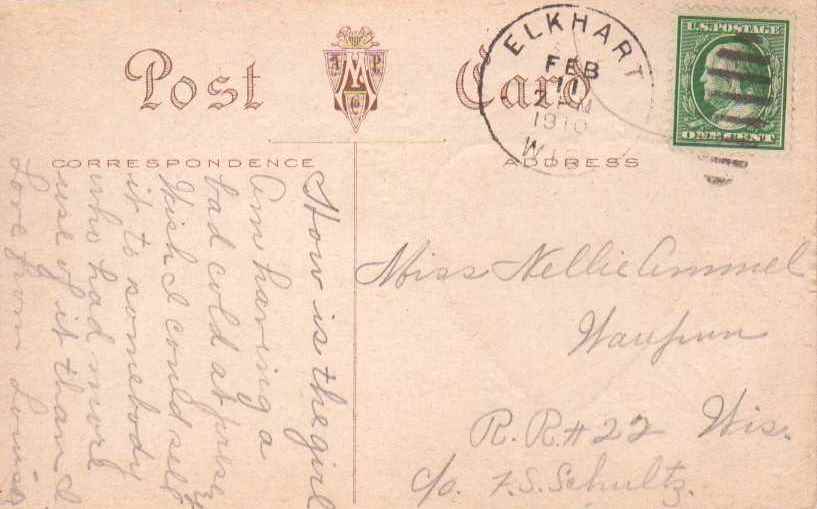 Post Card
A M P C
CORRESPONDENCE
ADDRESS
ELKHART
FEB
11
1910
WIS.
U.S. POSTAGE
ONE CENT
How is the girl
Am having a
bad cold at present
Wish I could sell
it to somebody
who had more
use of it than I
Love from Louise
Miss Nellie Ammel
Waupun
R.R.#22 Wis.
c/o. F.S. Schultz.